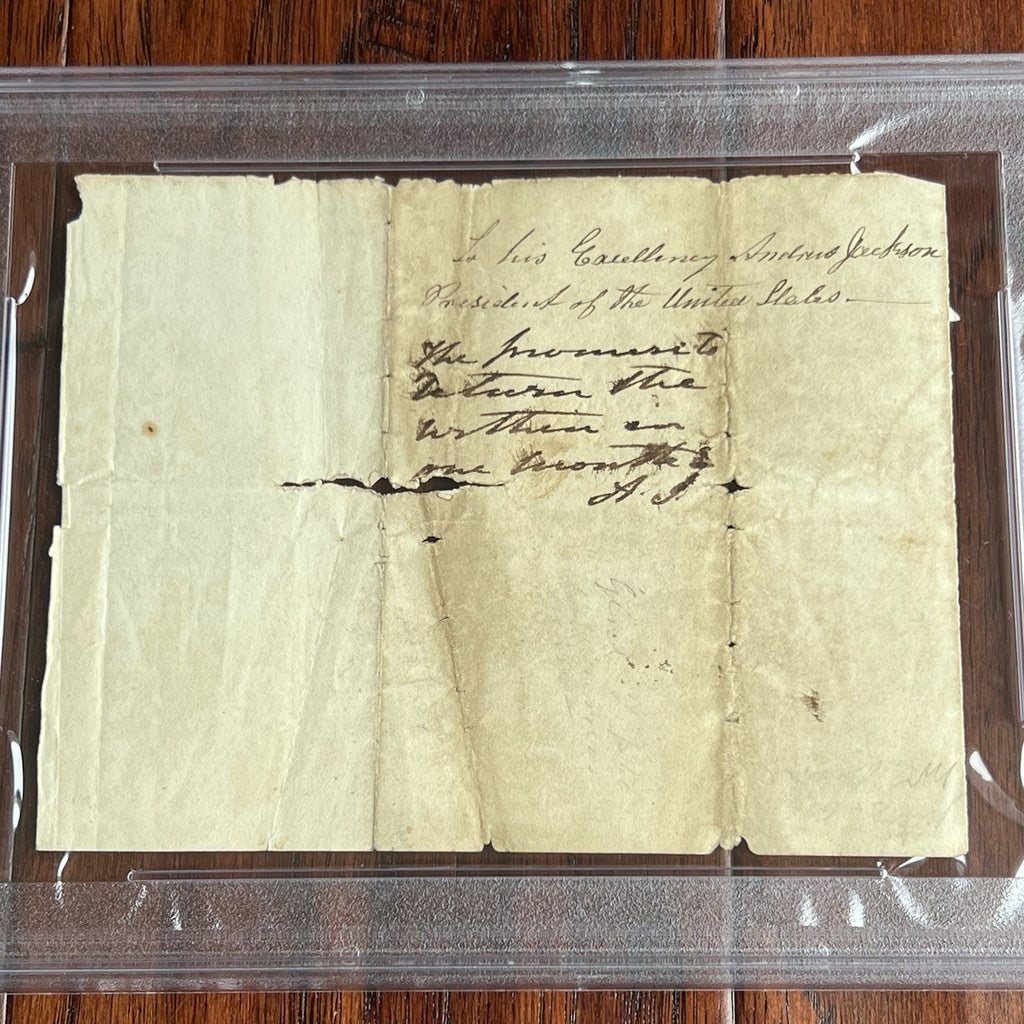 To his Excellency Andrew Jackson
President of the United States.
The promise to
return the
within in
one month
A. J.